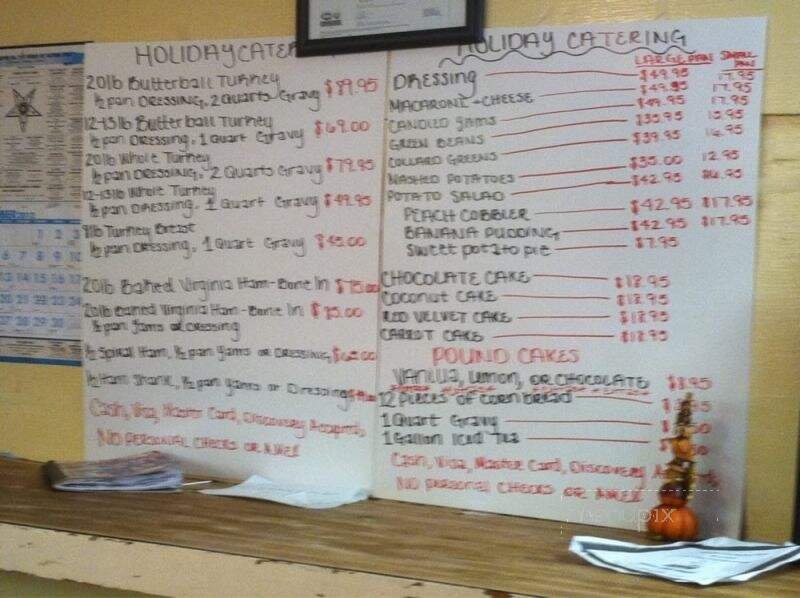 HOLIDAY CATER
20lb Butterball Turkey
½ pan DRESSING, 2 Quarts Gravy $89.95
12-15lb Butterball Turkey
½ pan DRESSING, 1 Quart Gravy $69.00
20lb Whole Turkey
½ pan DRESSING, 2 Quarts Gravy $79.95
12-15lb Whole Turkey
½ pan DRESSING, 1 Quart Gravy $49.95
8lb Turkey Breast
½ pan Dressing, 1 Quart Gravy $45.00
20lb Baked Virginia Ham-Bone In
20lb Baked Virginia Ham-Bone In
½ pan Yams or Dressing
½ Spiral Ham, ½ pan Yams or Dressing,
½ Ham Shank, ½ pan Yams or Dressing
Cash, Visa, Master Card, Discovery Accepted,
NO PERSONAL CHECKS OR AMEX
HOLIDAY CATERING
LARGE PAN SMALL PAN
DRESSING $49.95 17.95
MACARONI + CHEESE $49.95 17.95
CANDIED YAMS $49.95 17.95
GREEN BEANS $39.95
COLLARD GREENS $39.95
MASHED POTATOES $35.00 12.95
POTATO SALAD $42.95
PEACH COBBLER $42.95 $17.95
BANANA PUDDING $42.95 $17.95
Sweet potato pie $7.95
CHOCOLATE CAKE $18.95
Coconut CAKE $18.95
RED VELVET CAKE $18.95
CARROT CAKE $18.95
POUND CAKES
VANILLA, LEMON, OR CHOCOLATE
12 Pieces of cornbread
1 Quart Gravy
1 Gallon Iced Tea
Cash, Visa, Master Card, Discovery
NO PERSONAL CHECKS OR AMEX